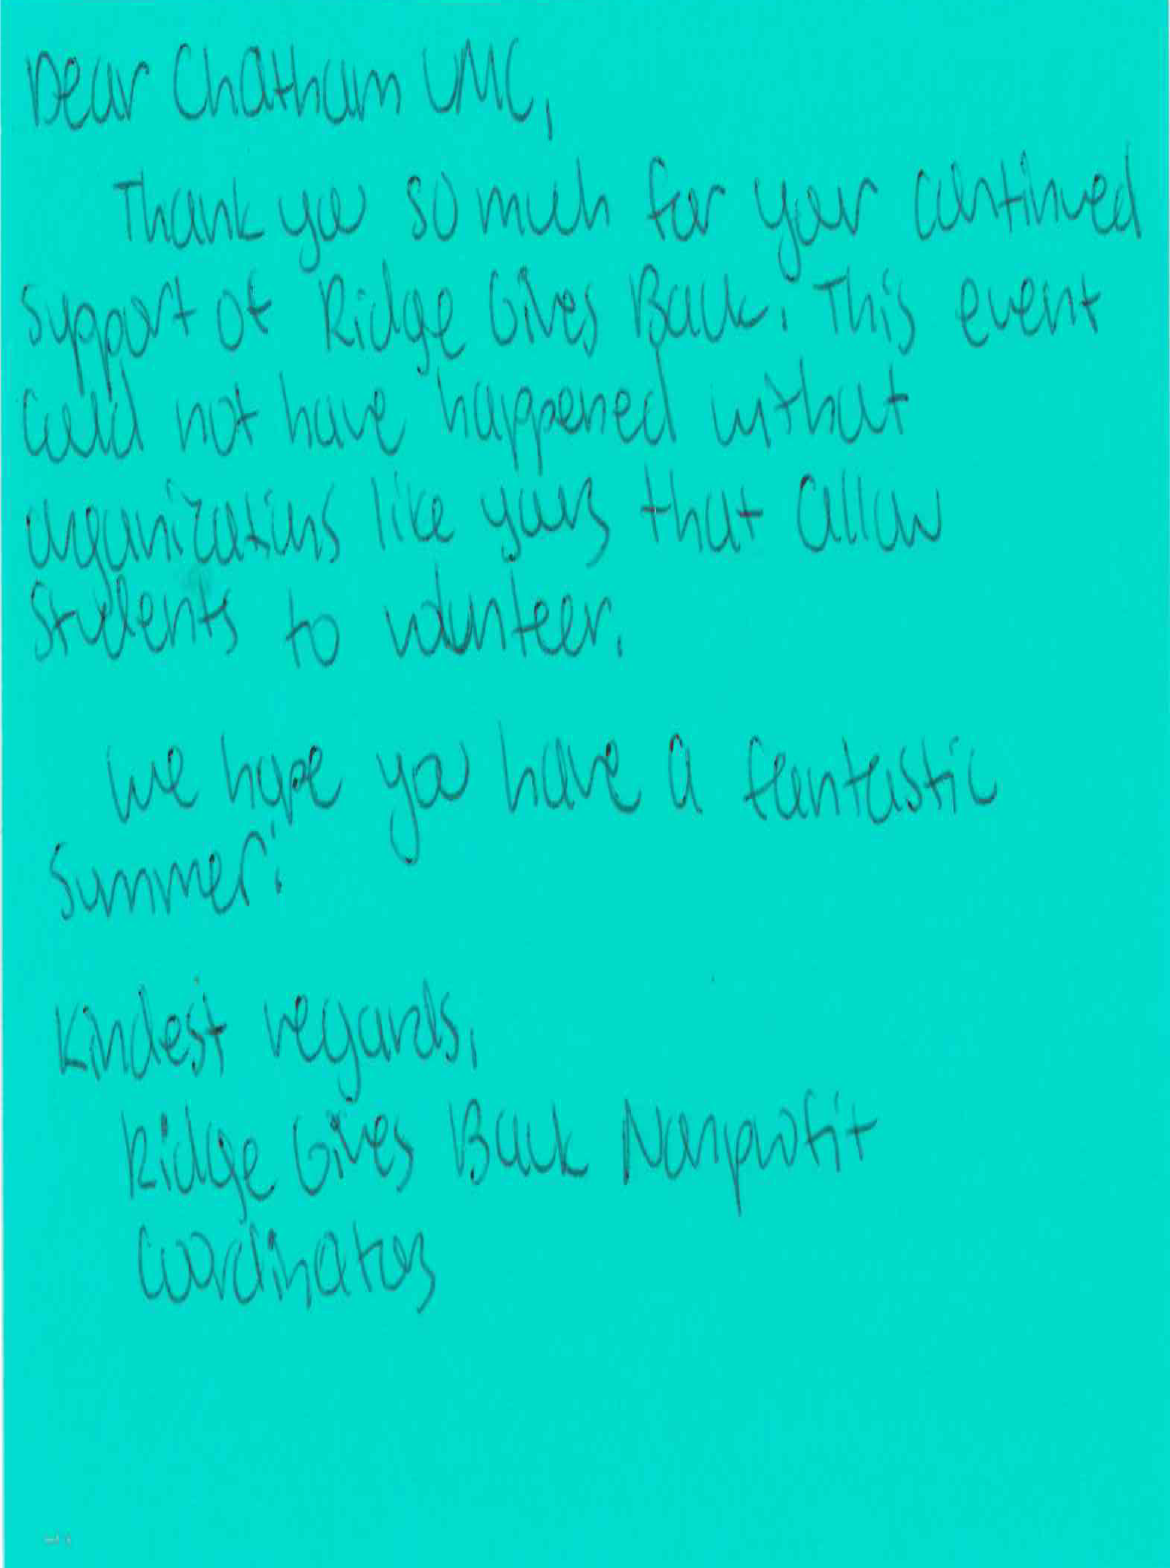 Dear Chatham UMC,
Thank you so much for your continued
support of Ridge Gives Back. This event
could not have happened without
organizations like yours that allow
students to volunteer.
We hope you have a fantastic
summer!
Kindest regards,
Ridge Gives Back Nonprofit
Coordinators